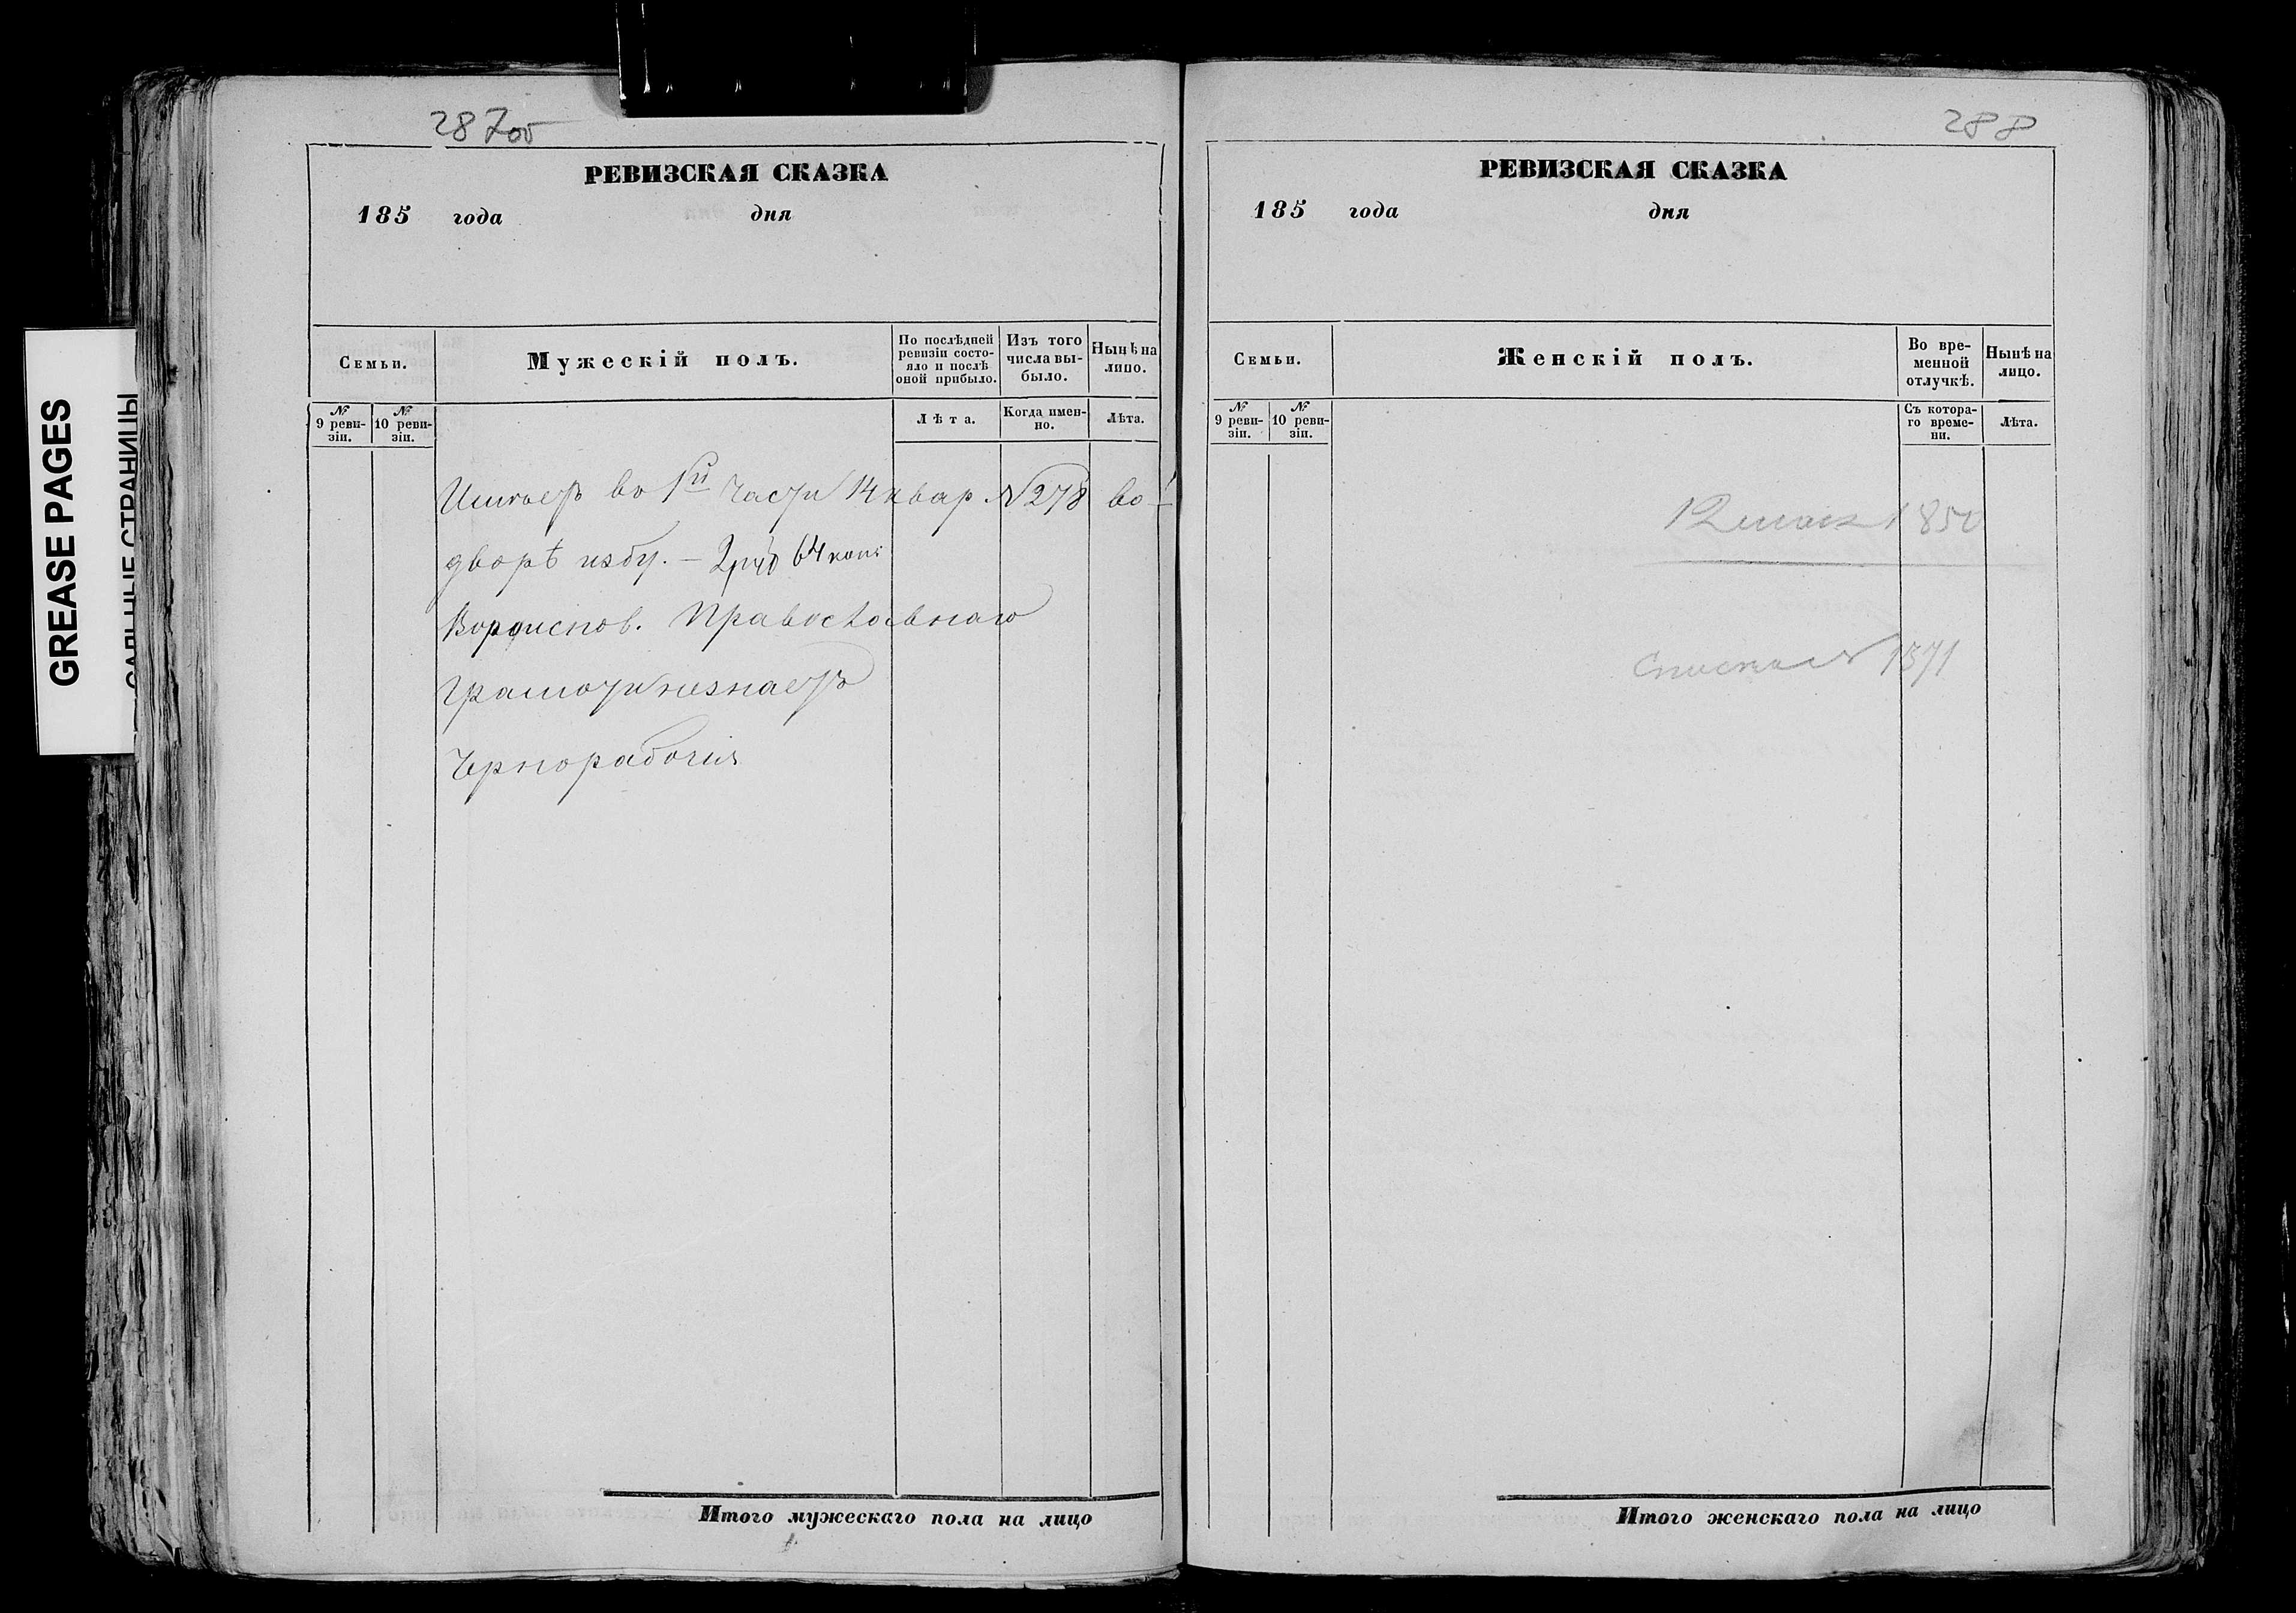 GREASE PAGES
САЛЬНЫЕ СТРАНИЦЫ
287об
РЕВИЗСКАЯ СКАЗКА
185 года дня
Семьи.
Мужескій полъ.
По послѣдней ревизіи состояло и послѣ оной прибыло.
Изъ того числа выбыло.
Нынѣ на лицо.
№ 9 ревизіи.
№ 10 ревизіи.
Лѣта.
Когда именно.
Лѣта.
Имѣетъ во 1й части 14 квар. №278 во
дворѣ избу. — 2 руб 64 коп:
Вѣроиспов. Православнаго
Грамоти незнаетъ
Чернорабочія
Итого мужескаго пола на лицо
288
РЕВИЗСКАЯ СКАЗКА
185 года дня
Семьи.
Женскій полъ.
Во временной отлучкѣ.
Нынѣ на лицо.
№ 9 ревизіи.
№ 10 ревизіи.
Съ котораго времени.
Лѣта.
1850
1871
Итого женскаго пола на лицо